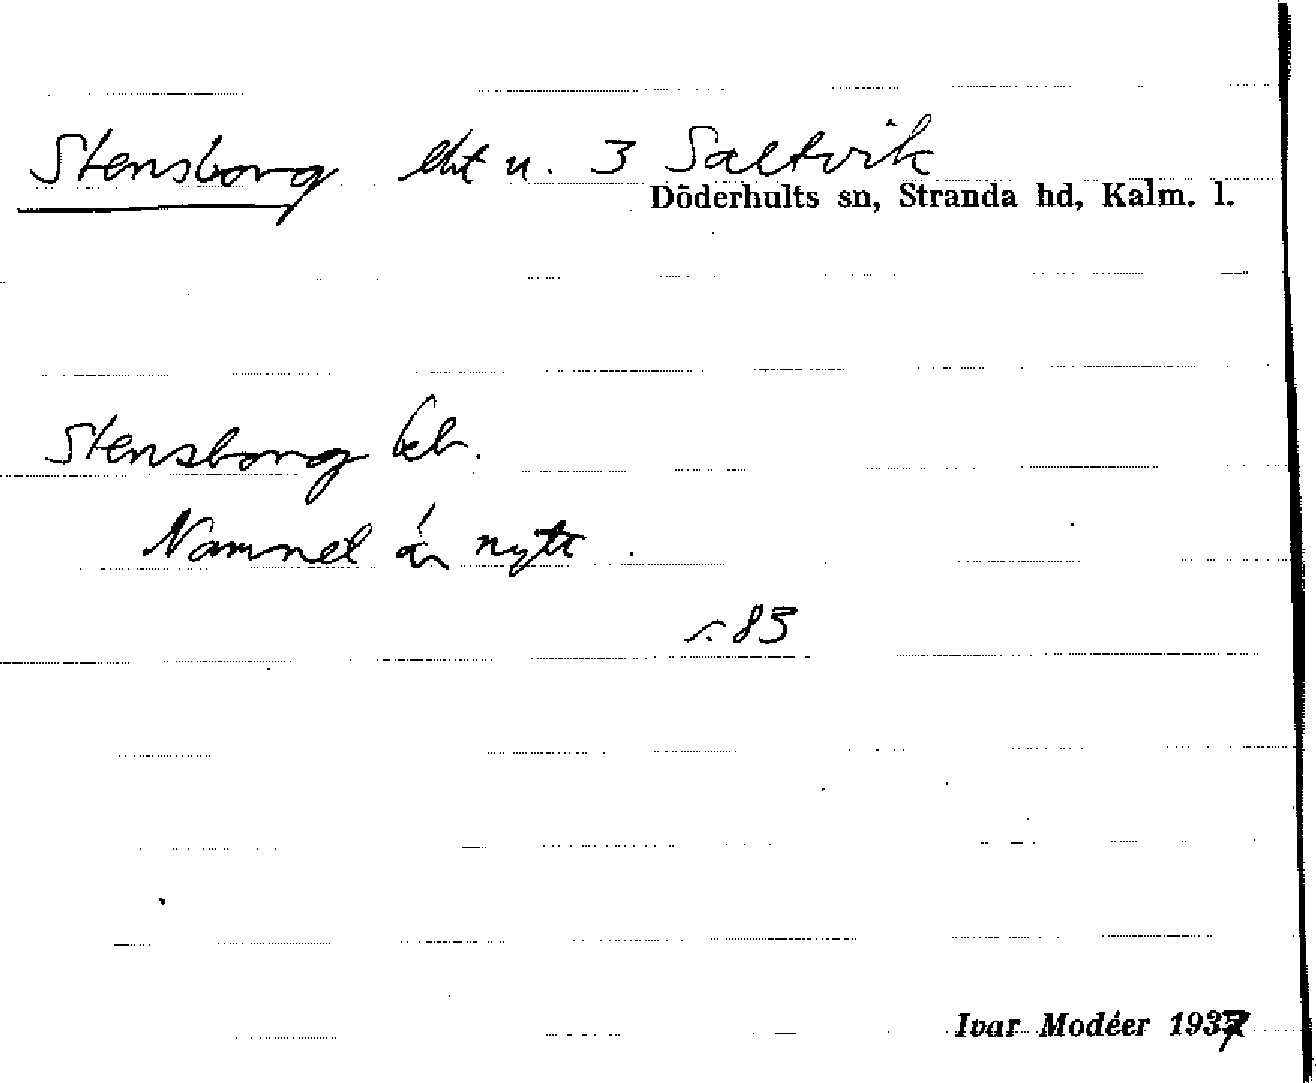 Stensborg lht u. 3 Saltvik
Döderhults sn, Stranda hd, Kalm. l.
Stensborg
Namnet är nytt.
s. 83
Ivar Modéer 1937